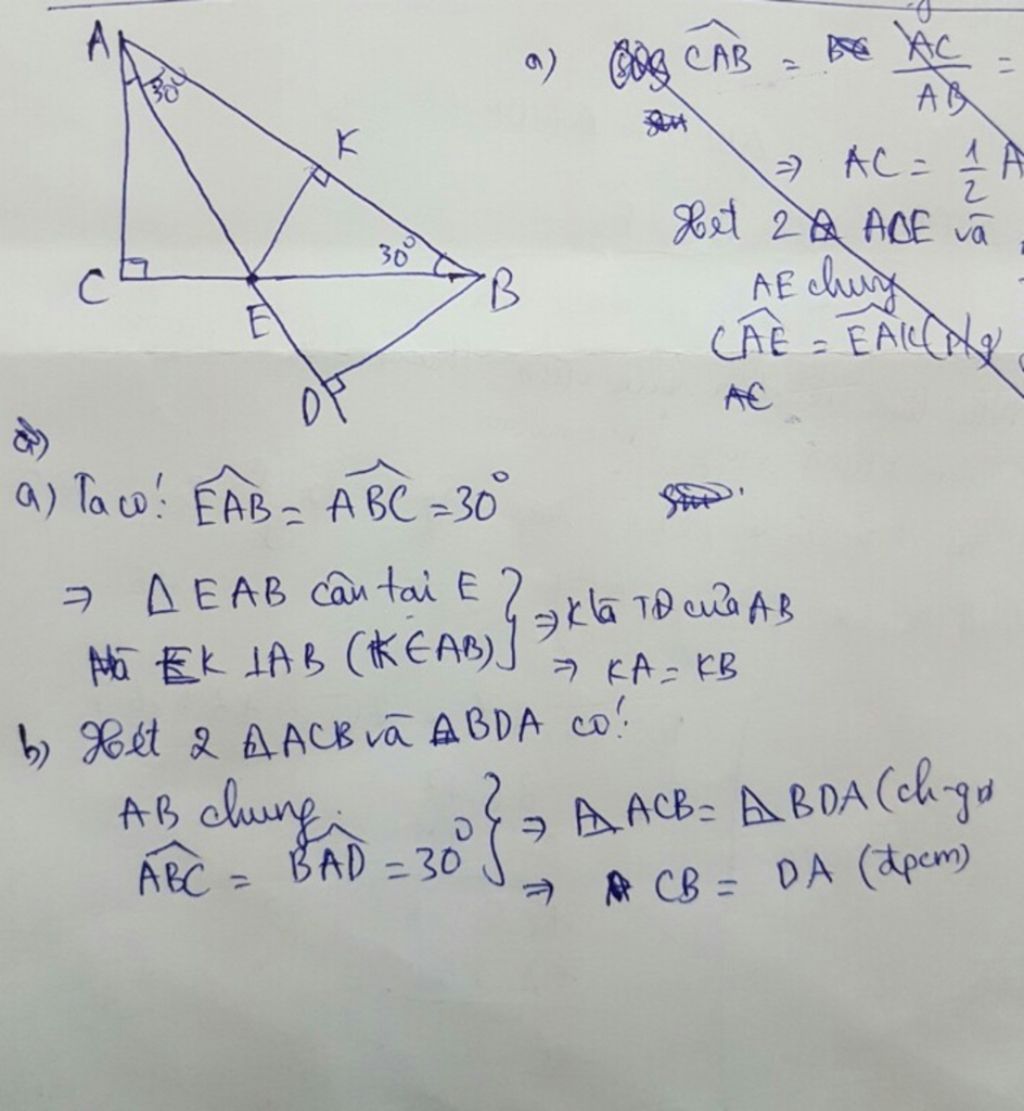 A
30°
K
30°
C
B
E
D
a) CAB = AC/AB =
⇒ AC = 1/2 A
Xét 2 Δ ACE và
AE chung
CAE = EAK (p/g
AC
a) Ta có: EAB = ABC = 30°
⇒ Δ EAB cân tại E
Mà EK ⊥ AB (K ∈ AB)
⇒ K là TĐ của AB
⇒ KA = KB
b) Xét 2 Δ ACB và Δ BDA có:
AB chung
ABC = BAD = 30°
⇒ Δ ACB = Δ BDA (ch-gn
⇒ CB = DA (đpcm)